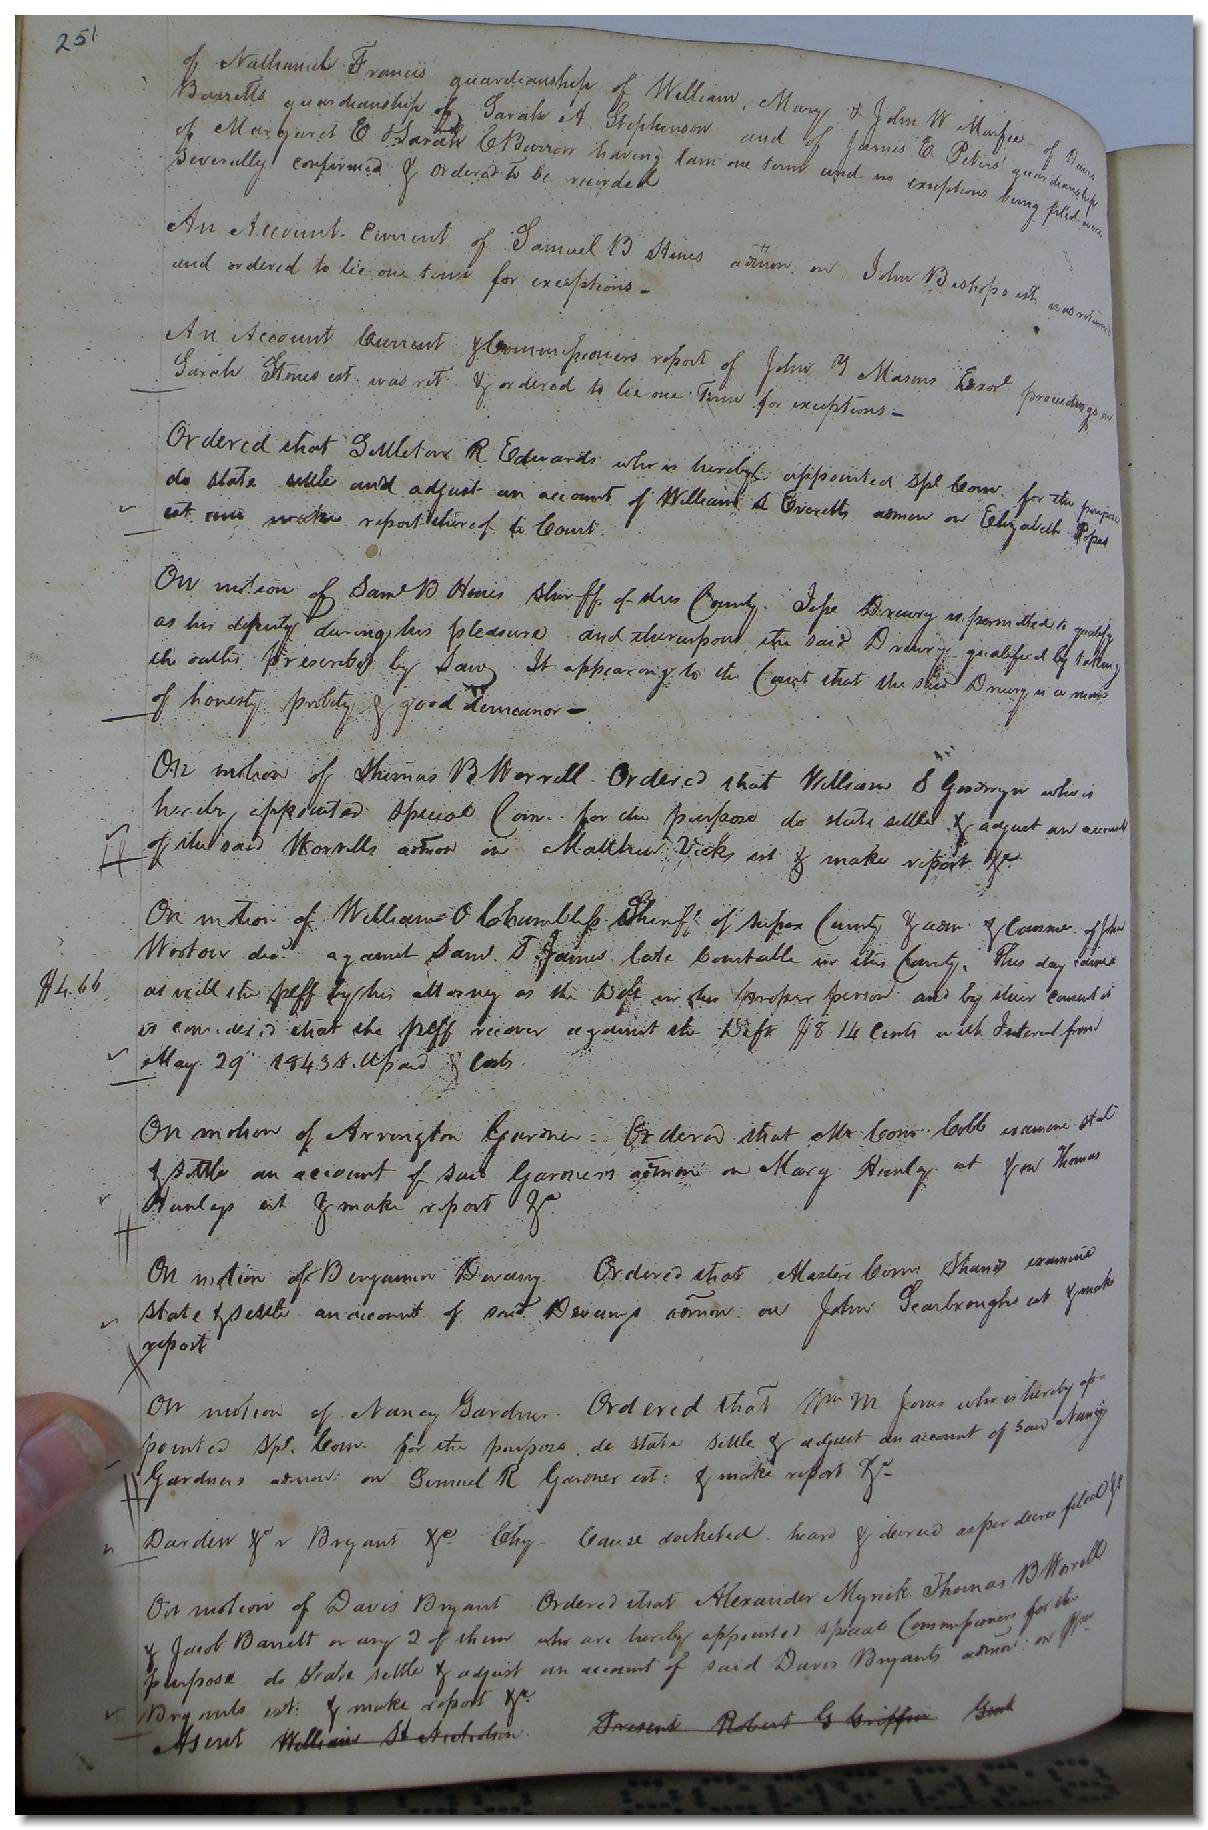 251
of Nathaniel Francis guardianship of William, Mary & John W Murfee of Davis
Barretts guardianship of Sarah A Stephenson and of James E Peters guardianship
of Margaret E & Sarah E Barrow having lain one term and no exceptions being filed were
severally confirmed & ordered to be recorded
An Account Current of Samuel B Hines admon on John Bishops est was returned
and ordered to lie one term for exceptions -
An Account Current & Commissioners report of John Y Masons Exors proceedings on
Sarah est. was ret & ordered to lie one Term for exceptions -
Ordered that Littleton R Edwards who is hereby appointed Spl Com. for the purpose
do state settle and adjust an account of William Everetts admon on Elizabeth Popes
est and make report thereof to Court.
On motion of Saml B Hines Sheriff of this County. Drewry is permitted to qualify
as his deputy during his pleasure and thereupon the said Drewry qualified by taking
the oaths prescribed by Law, It appearing to the Court that the said Drewry is a man
of honesty probity & good Demeanor -
On motion of Thomas B Worrell Ordered that William S Goodwyn who is
hereby appointed Special Com. for the purpose do state settle & adjust an account
of the said Worrells admon on Matthew Vicks est & make report &c
On motion of William O Chambliss Sheriff of Sussex County & adm & Comme of John
dec against Saml. T James late Constable in this County. This day came
$4.66
as well the plff by his attorney as the Deft in his proper person and by their consent it
is considered that the plff recover against the Deft $8 14 Cents with Interest from
May 29 1843 & Costs.
On motion of Arrington Gardner - Ordered that Mr Com. Cobb examine stat
& settle an account of said Gardners admon on Mary Hunly est & on Thomas
Hunlys est & make report &c
On motion of Benjamin Devany Ordered that Master Com Shands examine
state & settle an account of said Devanys admon. on John Scarbroughs est & make
report
On motion of Nancy Gardner. Ordered that Wm M Jones who is hereby ap-
pointed Spl. Com. for the purpose do state settle & adjust an account of said Nancy
Gardners admon: on Lemuel R Gardner est: & make report &c -
Darden &c v Bryant &c Chy - Cause docketed heard & decreed as per decree filed &c
On motion of Davis Bryant Ordered that Alexander Myrick Thomas B Worrell
& Jacob Barrett or any 2 of them who are hereby appointed special Commissioners for the
purpose do state settle & adjust an account of said Davis Bryants admon: on Wm
Bryants est: & make report &c.
Absent William H Nicholson. Present Robert G Griffin Gent